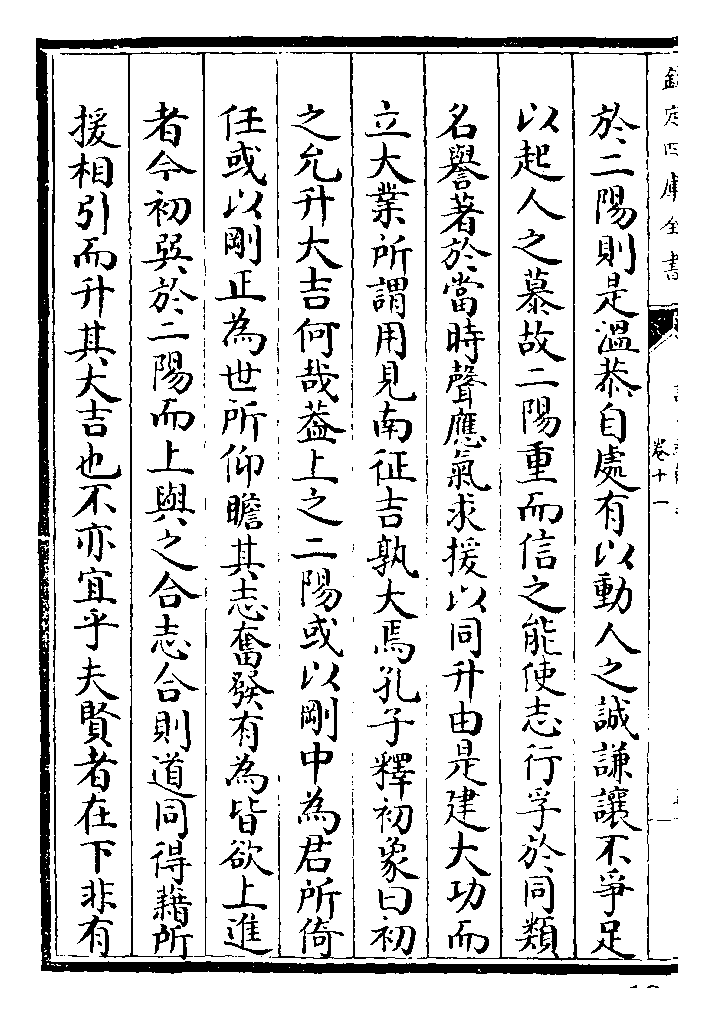 欽定四庫全書
卷十一
於二陽則是溫恭自處有以動人之誠謙讓不爭足
以起人之慕故二陽重而信之能使志行孚於同類
名譽著於當時聲應氣求援以同升由是建大功而
立大業所謂用見南征吉孰大焉孔子釋初象曰初
之允升大吉何哉蓋上之二陽或以剛中為君所倚
任或以剛正為世所仰瞻其志奮發有為皆欲上進
者今初巽於二陽而上與之合志合則道同得藉所
援相引而升其大吉也不亦宜乎夫賢者在下非有